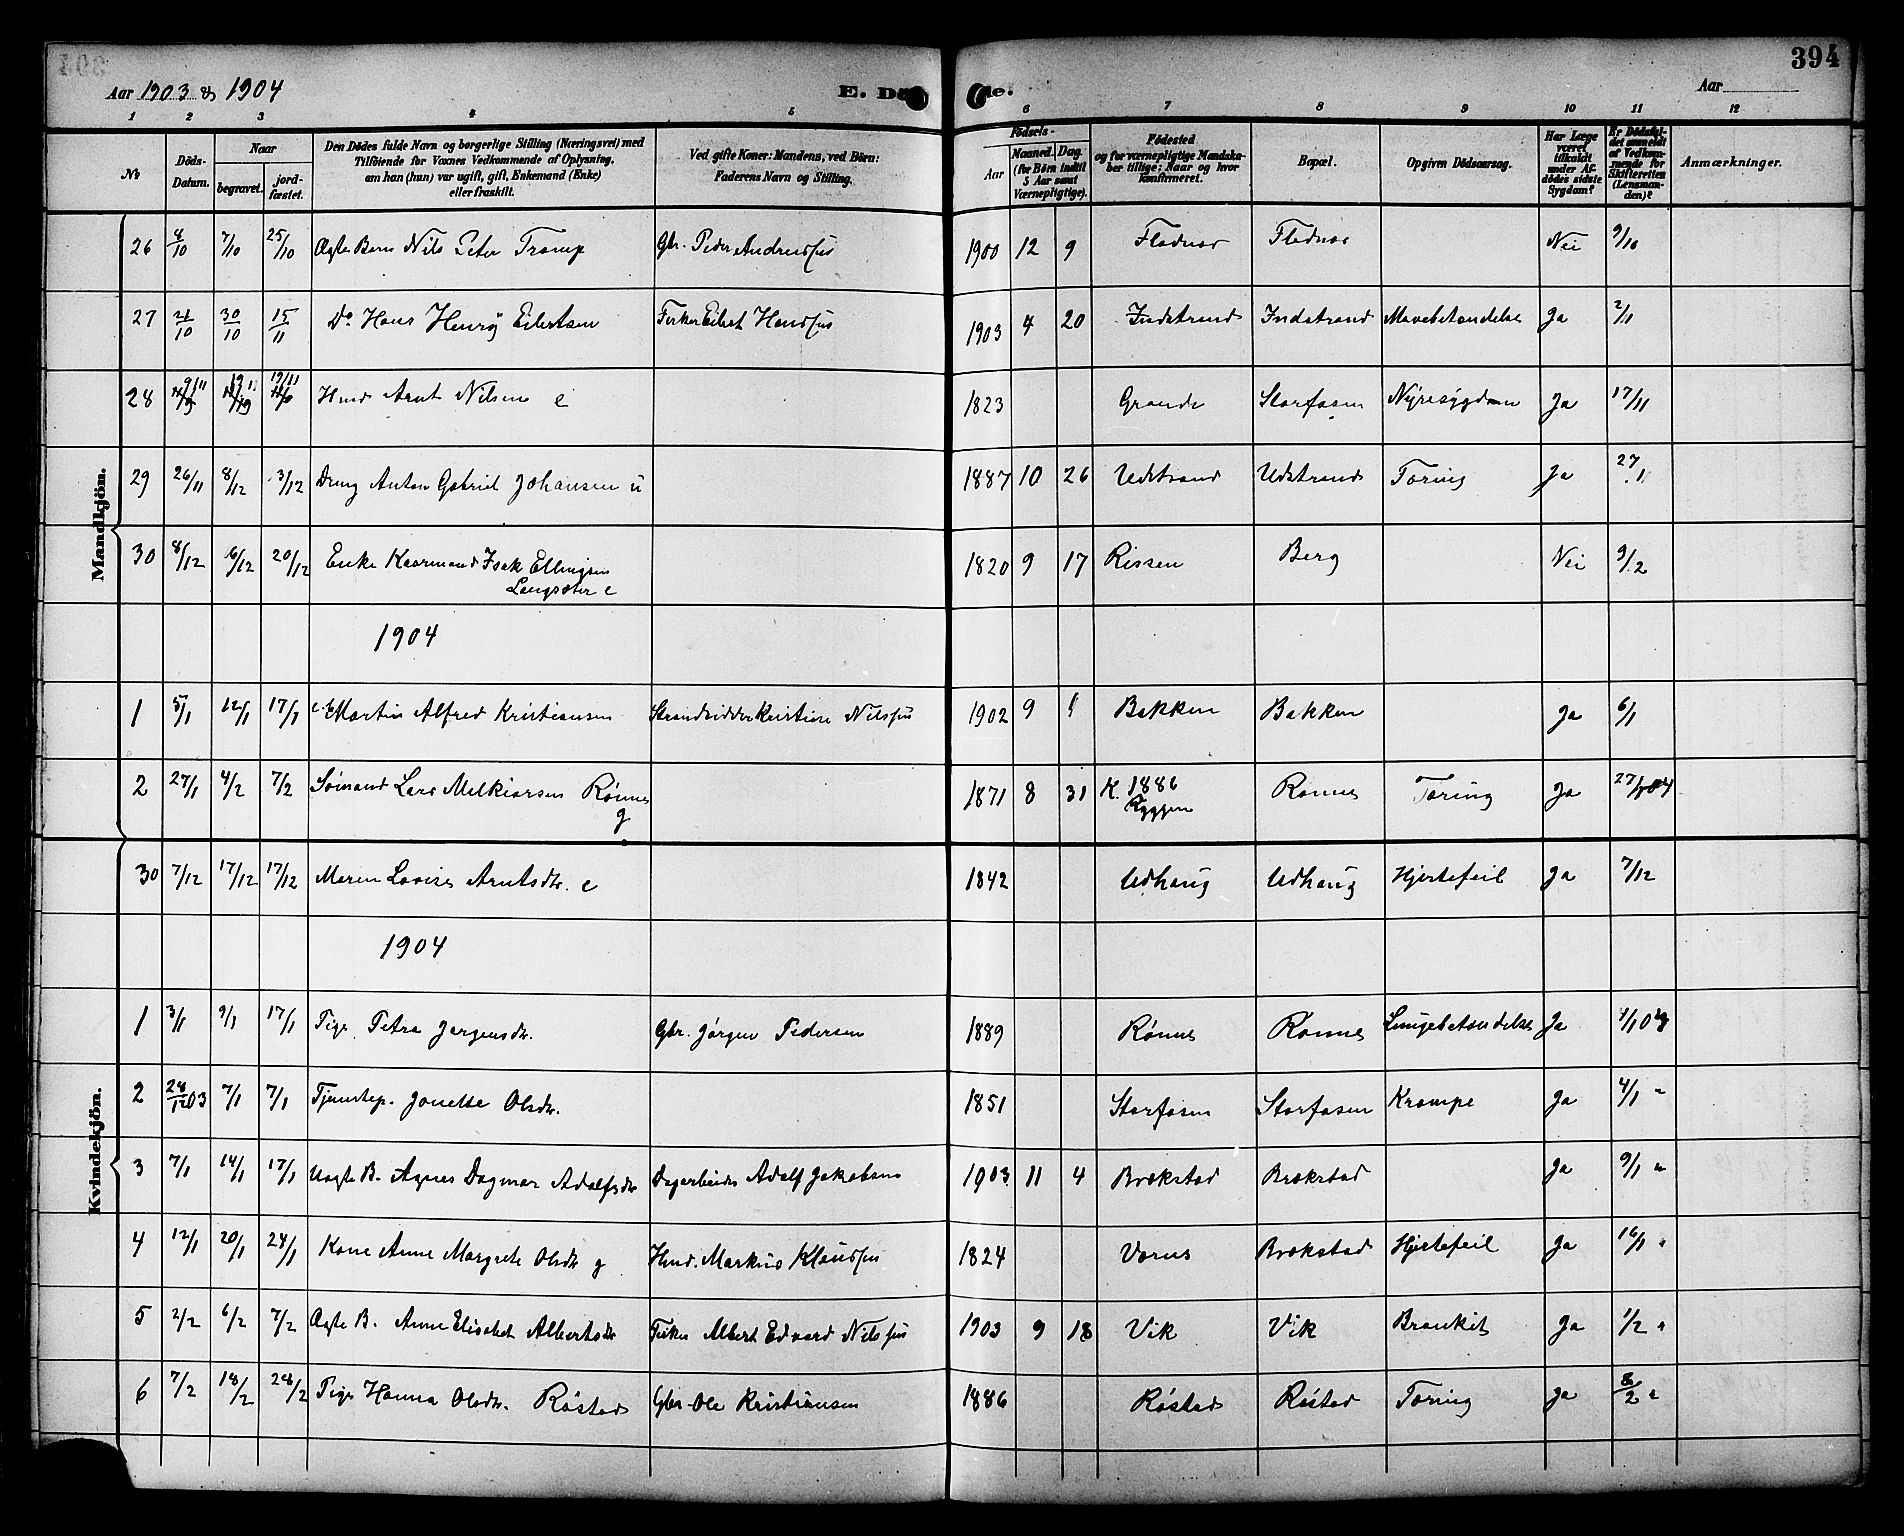 394
Aar 1903 & 1904
E. Dø de.
Aar
1 2 3 4 5 6 7 8 9 10 11 12
No
Døds-Datum.
Naar
begravet.
jord-fæstet.
Den Dødes fulde Navn og borgerlige Stilling (Næringsvei) med
Tilføiende for Voxnes Vedkommende af Oplysning,
om han (hun) var ugift, gift, Enkemand (Enke)
eller fraskilt.
Ved gifte Koner: Mandens, ved Børn:
Faderens Navn og Stilling.
Fødsels-
Aar
Maaned. Dag.
(for Børn indtil
5 Aar samt
Værnepligtige).
Fødested
og for værnepligtige Mandska-
ber tillige: Naar og hvor
konfirmeret.
Bopæl.
Opgiven Dødsaarsag.
Har Læge
været
tilkaldt
under Af-
dødes sidste
Sygdom?
Er Dødsfal-
det anmeldt
af Vedkom-
mende for
Skifteretten
(Lensman-
den)?
Anmærkninger.
Mandkjön.
26 4/10 7/10 25/10 Ægte Barn Nils Peter Tramp Gbr. Peder Andreas 1900 12 9 Fladnes Fladnes Nei 9/10
27 21/10 30/10 15/11 Do Hans Henrÿ Eilertsen Fisker Eilert Hans 1903 4 20 Indstrand Indstrand Mavebetændelse Ja 2/11
28 9/11 19/11 19/11 Hmd Arnt Nilsen e 1823 Grande Storfosen Nyresygdom Ja 17/11
29 26/11 8/12 13/12 Dreng Anton Gabriel Johansen u 1887 10 26 Udstrand Udstrand Tæring Ja 27/11
30 8/12 6/12 20/12 Enke Kaarmand Isak Ellingsen
Langsæter e 1820 9 17 Rissen Berg Nei 9/12
1904
1 5/1 12/1 17/1 Martin Alfred Kristiansen Strandsidder Kristian Nils 1902 9 1 Bakken Bakken Ja 6/1
2 27/1 4/2 7/2 Sømand Lars Melkiorsen Rønnes
g 1871 8 31 K. 1886
Ryggen Rønnes Tæring Ja 27/1 04
Kvindekjön.
30 7/12 17/12 17/12 Maren Lovise Arntsdtr. e 1842 Udhaug Udhaug Hjertefeil Ja 7/12
1904
1 3/1 9/1 17/1 Pige Petra Jørgensdtr. Gbr. Jørgen Pedersen 1889 Rønnes Rønnes Lungebetændelse Ja 4/1 04
2 28/12 03 7/1 7/1 Tjenstep. Jonette Olsdtr. 1851 Storfosen Storfosen Krampe Ja 4/1 "
3 7/1 14/1 17/1 Uægte B. Agnes Dagmar Adolfsdtr Dagarbeider Adolf Jakobsen 1903 11 4 Brækstad Brækstad Ja 9/1 "
4 12/1 20/1 24/1 Kone Anne Margrete Olsdtr g Hmd. Markus Klaus 1824 Værnes Brækstad Hjertefeil Ja 16/1 "
5 2/2 6/2 7/2 Ægte B. Anne Elisabet Albertsdtr Fisker Albert Edvard Nils 1903 9 18 Vik Vik Bronkit Ja 1/2 "
6 7/2 18/2 28/2 Pige Hanna Olsdtr. Røstad Gbr. Ole Kristiansen 1886 Røstad Røstad Tæring Ja 8/2 "